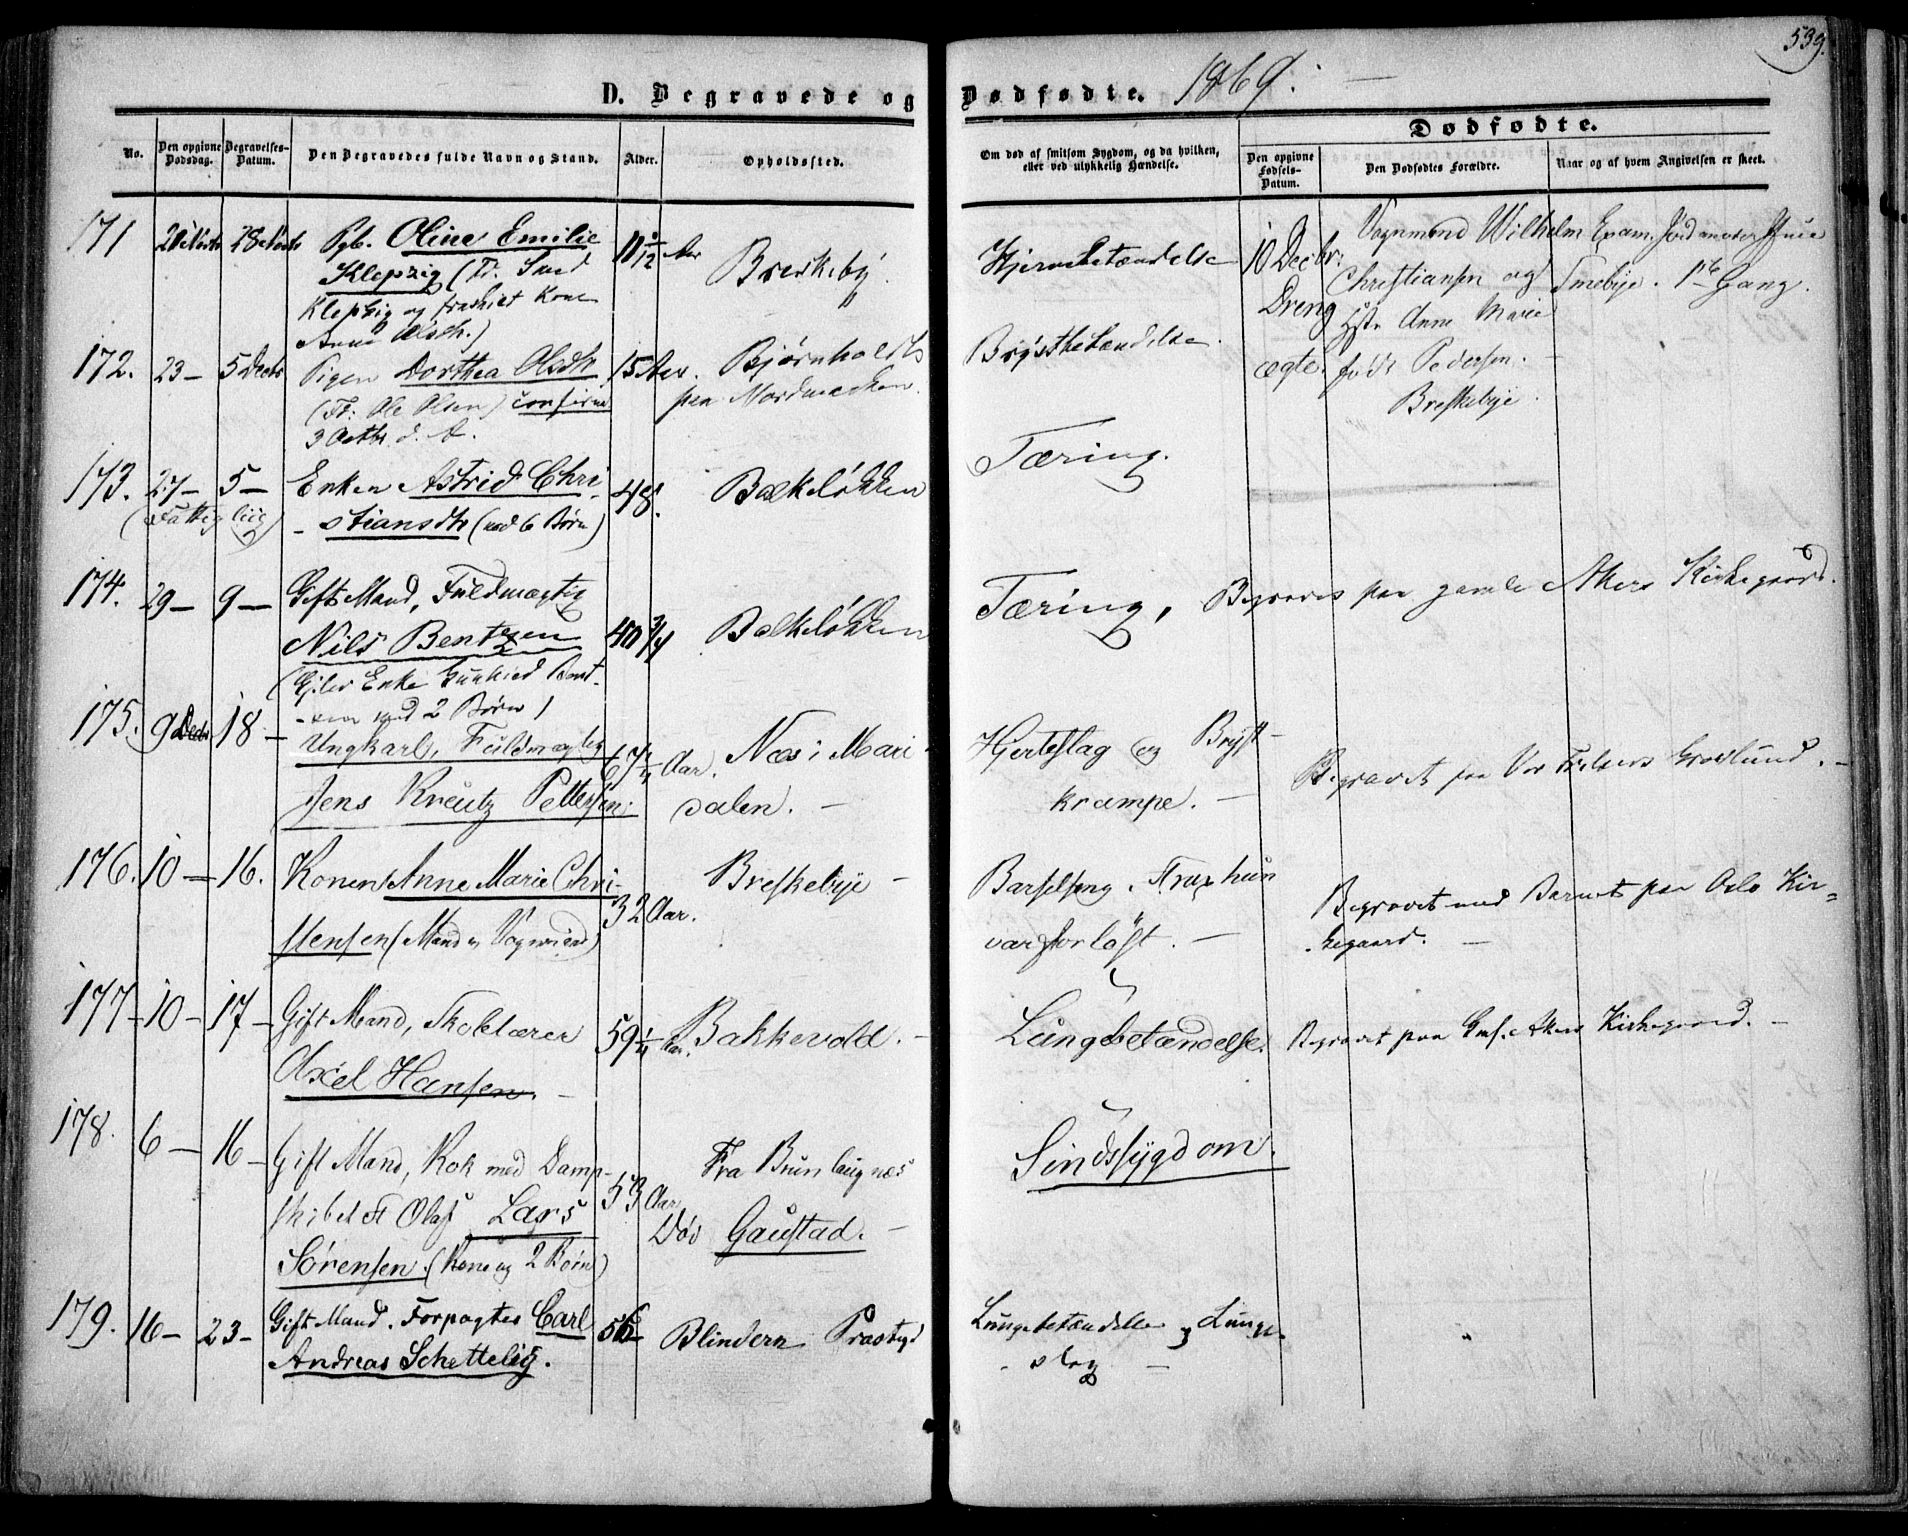 539.
D. Begravede og Dødfødte. 1869. —
No.
Den opgivne Dødsdag.
Begravelses-Datum.
Den Begravedes fulde Navn og Stand.
Alder.
Opholdssted.
Om død af smitsom Sygdom, og da hvilken, eller ved ulykkelig Hændelse.
Dødfødte.
Den opgivne Fødsels-Datum.
Den Dødfødtes Forældre.
Naar og af hvem Angivelsen er skeet.
171 28 Pgb. Oline Emilie
Klepzig (Fr. Smed
Klepzig og fraskilt Kone
Anne Olsdtr.)
Breskeby
Hjernebetændelse
10 Decbr.
Dreng
ægte.
Vognmand Wilhelm
Christiansen og
Hstr. Anne Marie
født Pedersen.
Breskebye.
Exam. Jordmoder
Smebye. 1ste Gang.
172. 23 — 5 Decbr Pigen Dorthea Olsdtr 15 Aar. Bjørnholdt
(Fr: Ole Olsen) confirm
3 Octbr. d. A.
paa Nordmarken.
Brystbetændelse.
173. 27 — 5 — Enken Astrid Chri 48. Bakkeløkken
(Fattig liig)
- stiansdtr (med 6 Børn)
Tæring.
174. 29 — 9 — Gift Mand, Fuldmægtig
Nils Bentzen 40 3/4 Bakkeløkken
(Efterl. Enke Bent-
- zen med 2 Børn)
Tæring, Begraves paa gamle Akers Kirkegaard.
175. 9 Decbr 18 — Ungkarl, Fuldmægtig
Jens Kreutz Pettersen. 67 Aar. Næs i Mari
dalen. —
Hjerteslag og Bryst-
krampe. —
Begravet paa Vor Frelsers Gravlund. —
176. 10 — 16. Konen Anne Marie Chri-
stensen (Mand en Vognmand) 32 Aar.
Breskebye —
Barselseng, strax hun
var forløst. —
Begravet med Barnet paa Oslo Kir=
kegaard. —
177 — 10 — 17 — Gift Mand, Skolelærer
Axel Hansen. — 59 1/4 Aar. Bakkevold. —
Lungebetændelse. Begravet paa Gml. Akers Kirkegaard. —
178. 6 — 16 — Gift Mand, Kok med Damp-
skibet St Olaf Lars
Sørensen. (Kone og 2 Børn)
53 Aar
Fra Brunlaugnæs
Død Gaustad. —
Sindssygdom.
179. 16 — 23 — Gift Mand. Forpagter Carl
Andreas Schettelig. 56 Blindern
Lungebetændelse og Lunge-
- slag —